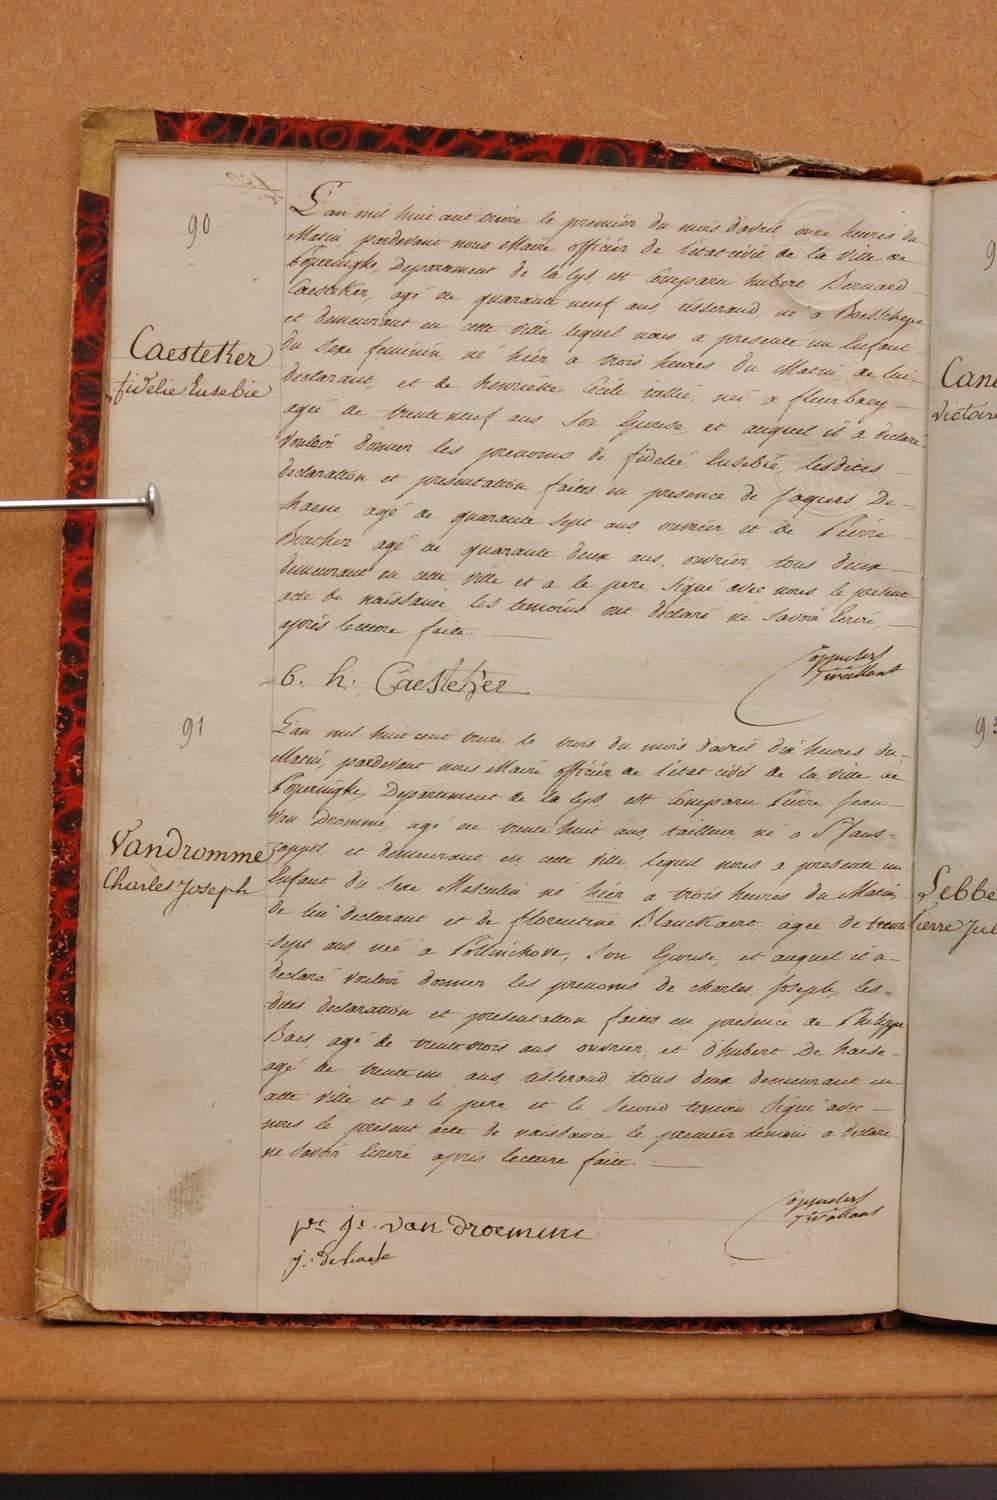 90
Caesteker
fidelie Eusebie
L'an mil huit cent treize le premier du mois d'avril onze heures du
Matin pardevant nous Maire officier de l'état civil de la ville de
Poperinghe, Departement de la Lys est Comparu hubert Bernard
Caesteker, agé de quarante neuf ans tisserand né a Boeschepe
et demeurant en cette ville lequel nous a presenté un Enfant
du sexe feminin né hier a trois heures du Matin de lui
declarant, et de henriette Cecile née a fleurbaey
agée de trente neuf ans, son Epouse, et auquel il a declaré
vouloir donner les prenoms de fidelie Eusebie, lesdites
declaration et presentation faites en presence de Jaques De
haene agé de quarante sept ans ouvrier, et de Pierre
agé de quarante deux ans, ouvrier, tous deux
demeurant en cette ville et a le pere, signé avec nous le present
acte de naissance, les temoins ont declaré ne savoir Ecrire,
après lecture faite.
6. h. Caesteker
91
Vandromme
Charles Joseph
L'an mil huit cent treize le trois du mois d'avril dix heures du
Matin, pardevant nous Maire officier de l'état civil de la ville de
Poperinghe, Departement de la Lys est Comparu Pierre Jean
Van Dromme, agé de trente huit ans, tailleur né a St Jans=
cappel et demeurant en cette ville lequel nous a presenté un
Enfant du sexe Masculin né hier a trois heures du Matin,
de lui declarant et de florentine Blanckaert, agée de trente
=sept ans née a Pollinchove, son Epouse, et auquel il a
declaré vouloir donner les prenoms de charles Joseph, les=
=dites declaration et presentation faites en presence de Philippe
Baes agé de trente trois ans ouvrier, et d'hubert De haese
agé de trente un ans tisserand tous deux demeurant en
cette ville et a le pere et le second temoin signé avec
nous le present acte de naissance le premier temoin a declaré
ne savoir Ecrire après lecture faite.
prs js van droemme
j: dehaese
Cane
Victoire
Lebbe
Pierre Jul